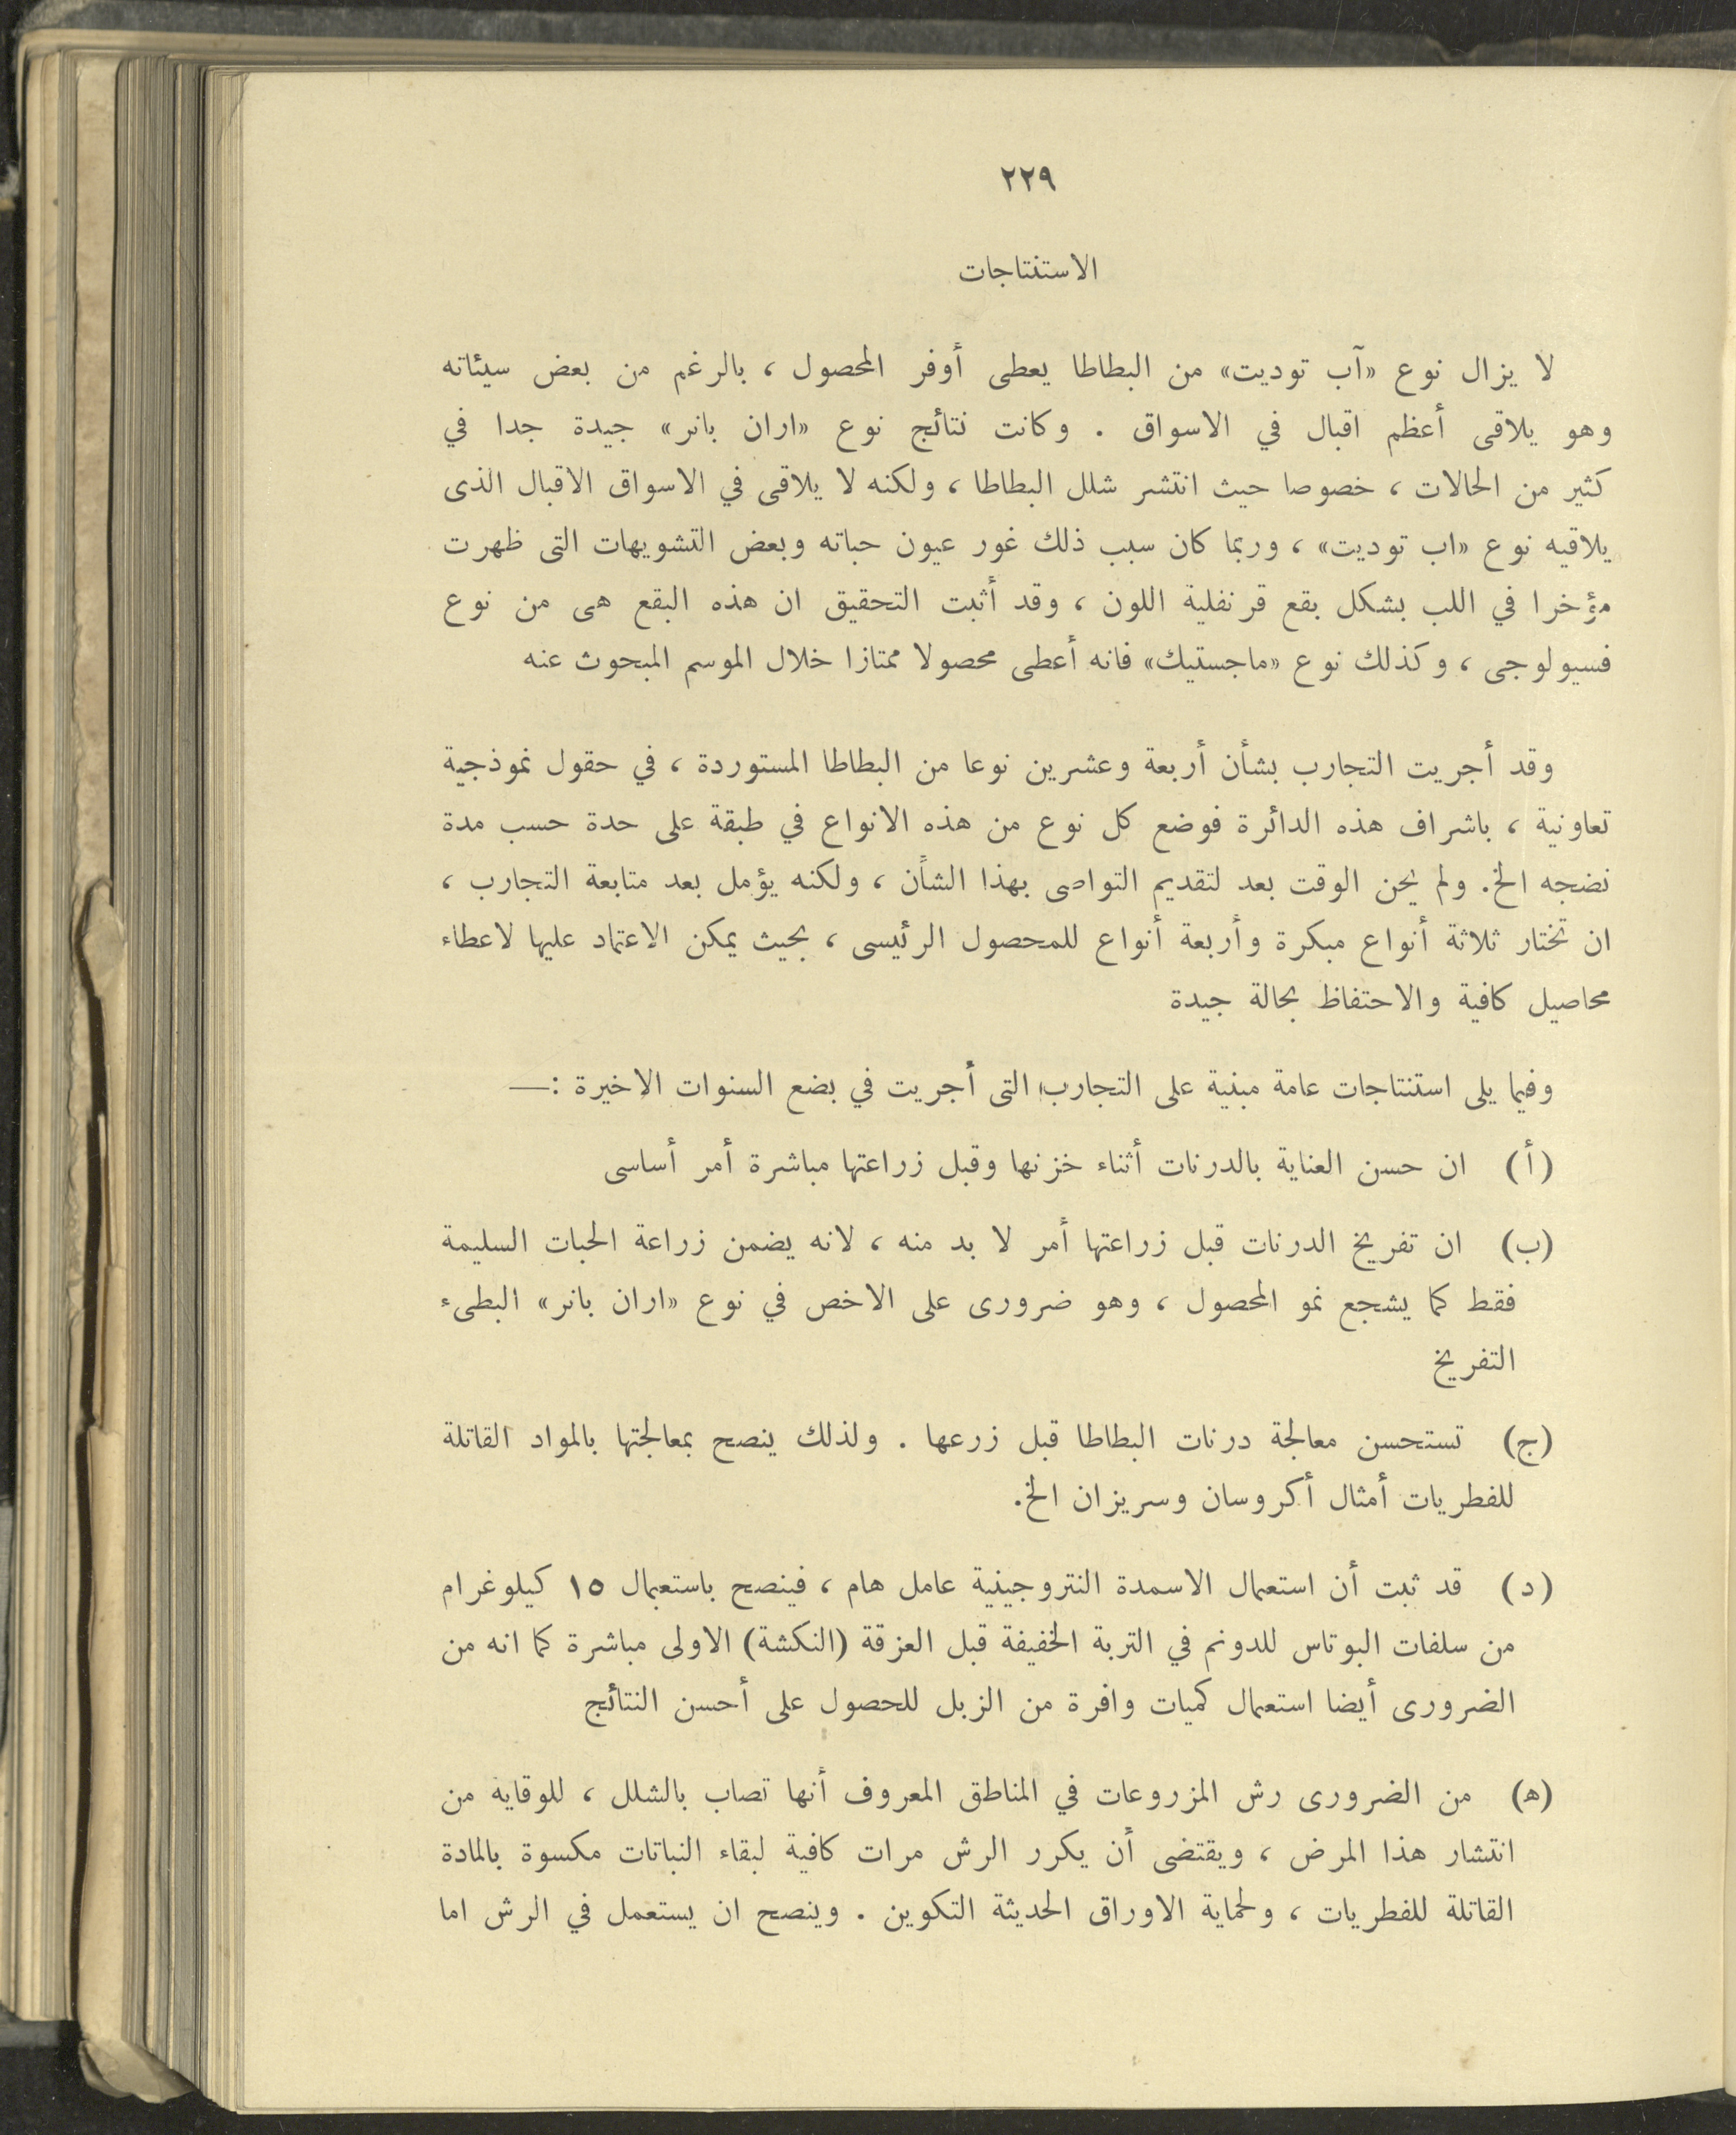 ٢٢٩
الاستنتاجات
لا يزال نوع «آب توديت» من البطاطا يعطى أوفر المحصول ، بالرغم من بعض سيئاته
وهو يلاقى أعظم اقبال في الاسواق . وكانت نتائج نوع «اران بانر» جيدة جدا في
كثير من الحالات ، خصوصا حيث انتشر شلل البطاطا ، ولكنه لا يلاقى في الاسواق الاقبال الذى
يلاقيه نوع «اب توديت» ، وربما كان سبب ذلك غور عيون حباته وبعض التشويهات التى ظهرت
مؤخرا في اللب بشكل بقع قرنفلية اللون ، وقد أثبت التحقيق ان هذه البقع هى من نوع
فسيولوجى ، وكذلك نوع «ماجستيك» فانه أعطى محصولا ممتازا خلال الموسم المبحوث عنه
وقد أجريت التجارب بشأن أربعة وعشرين نوعا من البطاطا المستوردة ، في حقول نموذجية
تعاونية ، باشراف هذه الدائرة فوضع كل نوع من هذه الانواع في طبقة على حدة حسب مدة
نضجه الخ. ولم يحن الوقت بعد لتقديم التواصى بهذا الشأن ، ولكنه يؤمل بعد متابعة التجارب ،
ان تختار ثلاثة أنواع مبكرة وأربعة أنواع للمحصول الرئيسى ، بحيث يمكن الاعتماد عليها لاعطاء
محاصيل كافية والاحتفاظ بحالة جيدة
وفيما يلى استنتاجات عامة مبنية على التجارب التى أجريت في بضع السنوات الاخيرة :—
(أ) ان حسن العناية بالدرنات أثناء خزنها وقبل زراعتها مباشرة أمر أساسى
(ب) ان تفريخ الدرنات قبل زراعتها أمر لا بد منه ، لانه يضمن زراعة الحبات السليمة
فقط كما يشجع نمو المحصول ، وهو ضرورى على الاخص في نوع «اران بانر» البطىء
التفريخ
(ج) تستحسن معالجة درنات البطاطا قبل زرعها . ولذلك ينصح بمعالجتها بالمواد القاتلة
للفطريات أمثال أكروسان وسريزان الخ.
(د) قد ثبت أن استعمال الاسمدة النتروجينية عامل هام ، فينصح باستعمال ١٥ كيلوغرام
من سلفات البوتاس للدونم في التربة الخفيفة قبل العزقة (النكشة) الاولى مباشرة كما انه من
الضرورى أيضا استعمال كميات وافرة من الزبل للحصول على أحسن النتائج
(ه) من الضرورى رش المزروعات في المناطق المعروف أنها تصاب بالشلل ، للوقاية من
انتشار هذا المرض ، ويقتضى أن يكرر الرش مرات كافية لبقاء النباتات مكسوة بالمادة
القاتلة للفطريات ، ولحماية الاوراق الحديثة التكوين . وينصح ان يستعمل في الرش اما